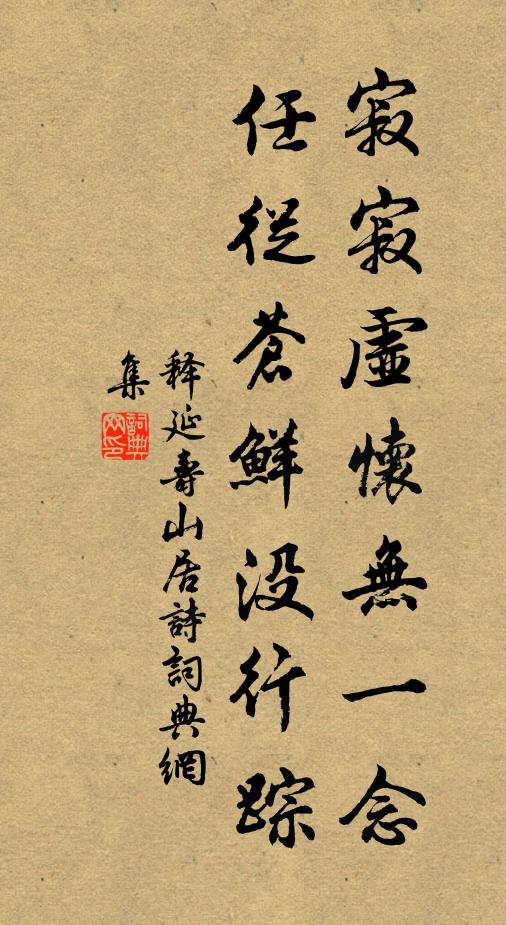 寂寂虛懷無一念
任從蒼鮮没行踪
释延壽山居詩詞典網
集
詞典网印